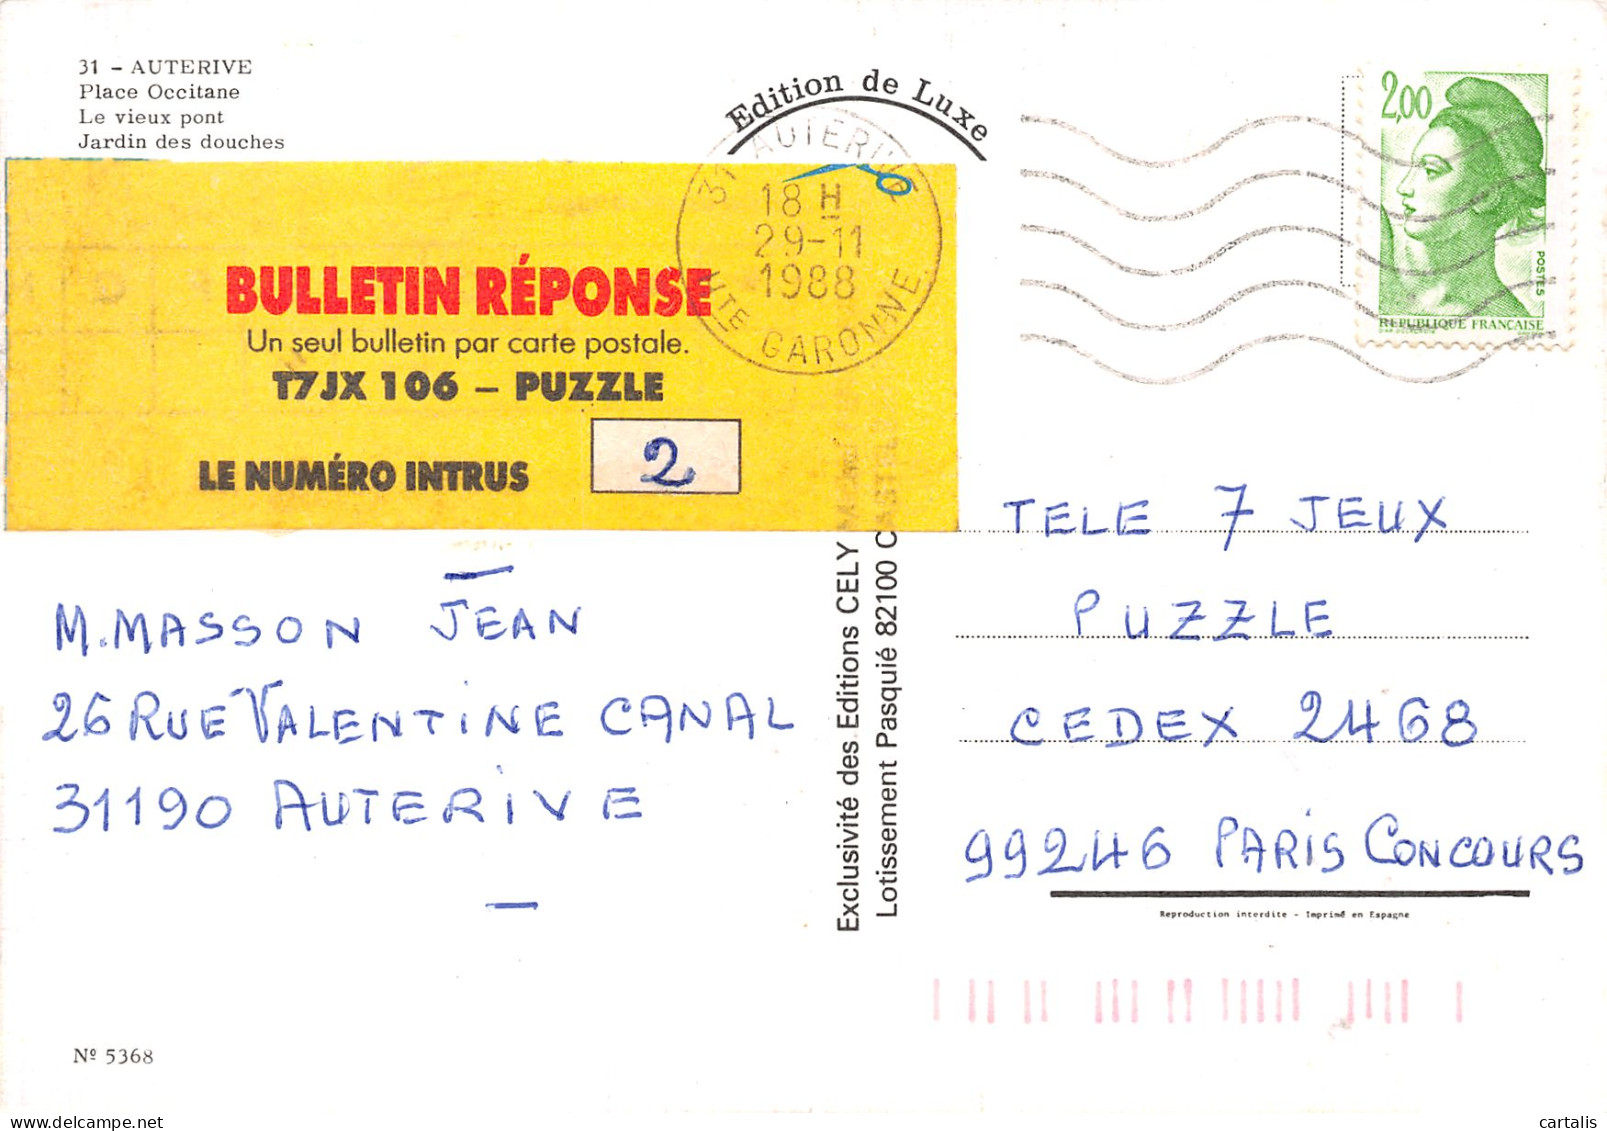 31 - AUTERIVE
Place Occitane
Le vieux pont
Jardin des douches
Edition de Luxe
31 AUTERIVE
18 H
29-11
1988
HTE GARONNE
2,00
POSTES
REPUBLIQUE FRANÇAISE
BULLETIN RÉPONSE
Un seul bulletin par carte postale.
T7JX 106 – PUZZLE
LE NUMÉRO INTRUS
2
M. MASSON JEAN
26 RUE VALENTINE CANAL
31190 AUTERIVE
Exclusivité des Editions CELY
Lotissement Pasquié 82100
TELE 7 JEUX
PUZZLE
CEDEX 2468
99246 PARIS CONCOURS
Reproduction interdite - Imprimé en Espagne
Nº 5368
cartalis | www.delcampe.net